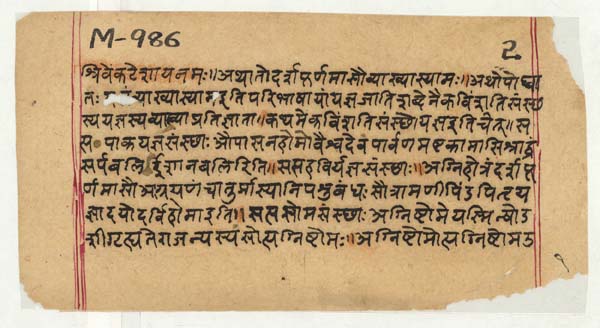 M-986
2
श्रीवेंकटेशायनमः॥ अथातोदर्शपूर्णमासौव्याख्यास्यामः॥ अथोपोद्घा
तः व्याख्यास्यामइतिपरिभाषायांयज्ञजातिशब्देनैकविंशतिसंस्थ
स्ययज्ञस्यव्याख्याप्रतिज्ञाता॥ कथमेकविंशतिसंस्थोयज्ञइतिचेत्॥ स
प्त पाकयज्ञसंस्थाः औपासनहोमोवैश्वदेवंपार्वणमष्टकामासिश्राद्धं
सर्पबलिरीशानबलिरिति॥ सप्तहविर्यज्ञसंस्थाः॥ अग्निहोत्रंदर्शपू
र्णमासौआग्रयणंचातुर्मास्यानिपशुबंधः सौत्रामणीपिंडपितृय
ज्ञादयोदर्विहोमाइति॥ सप्तसोमसंस्थाः अग्निष्टोमे
राजन्यस्य सोत्यग्निष्टोमः॥ अग्निष्टोमोत्यग्निष्टोमउ